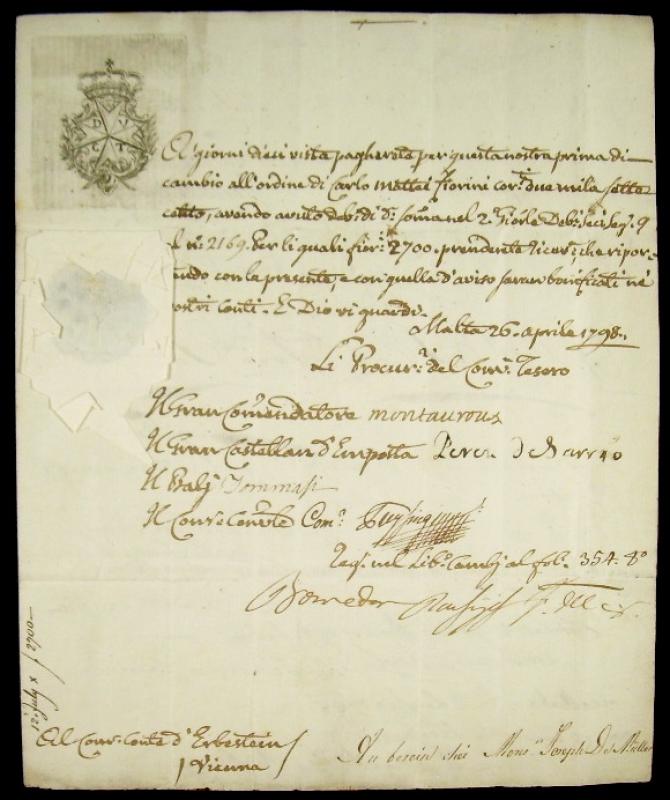 D V
C T
A giorni dieci vista pagherete per questa nostra prima di
cambio all'ordine di Carlo Mattei fiorini cor.ti due mila sette
cento, avendo avuto deb.° di S.a somā nel 2.° Gior.le Deb.
n.° 2169. Per li quali fior.i 2700. prendente ricev.a, che ripor
tando con la presente, e con quella d'aviso saran bonificati ne
nostri conti. E Dio vi guardi.
Malta 26. Aprile 1798.
Li Procur.ri del Com. Tesoro
Il Gran Com̄endatore Montauroux
Il Gran Castellan d'Emposta
Il Balj Tommasi
Il Com.
Reg.a nel Lib.° Cambj al fol. 354. 8°
12. July 8 f 2700—
Al Com. Conte d'Erbestein
Vienna
Au besoin chés Mons.r Joseph De Müller